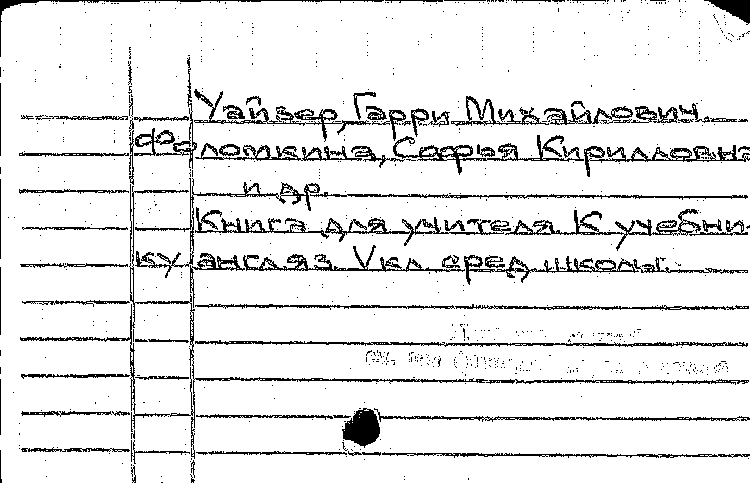 Уайзер, Гарри Михайлович.
Фоломкина, Софья Кирилловна
и др.
Книга для учителя. К учебни-
ку англ.яз. V кл. сред. школы.